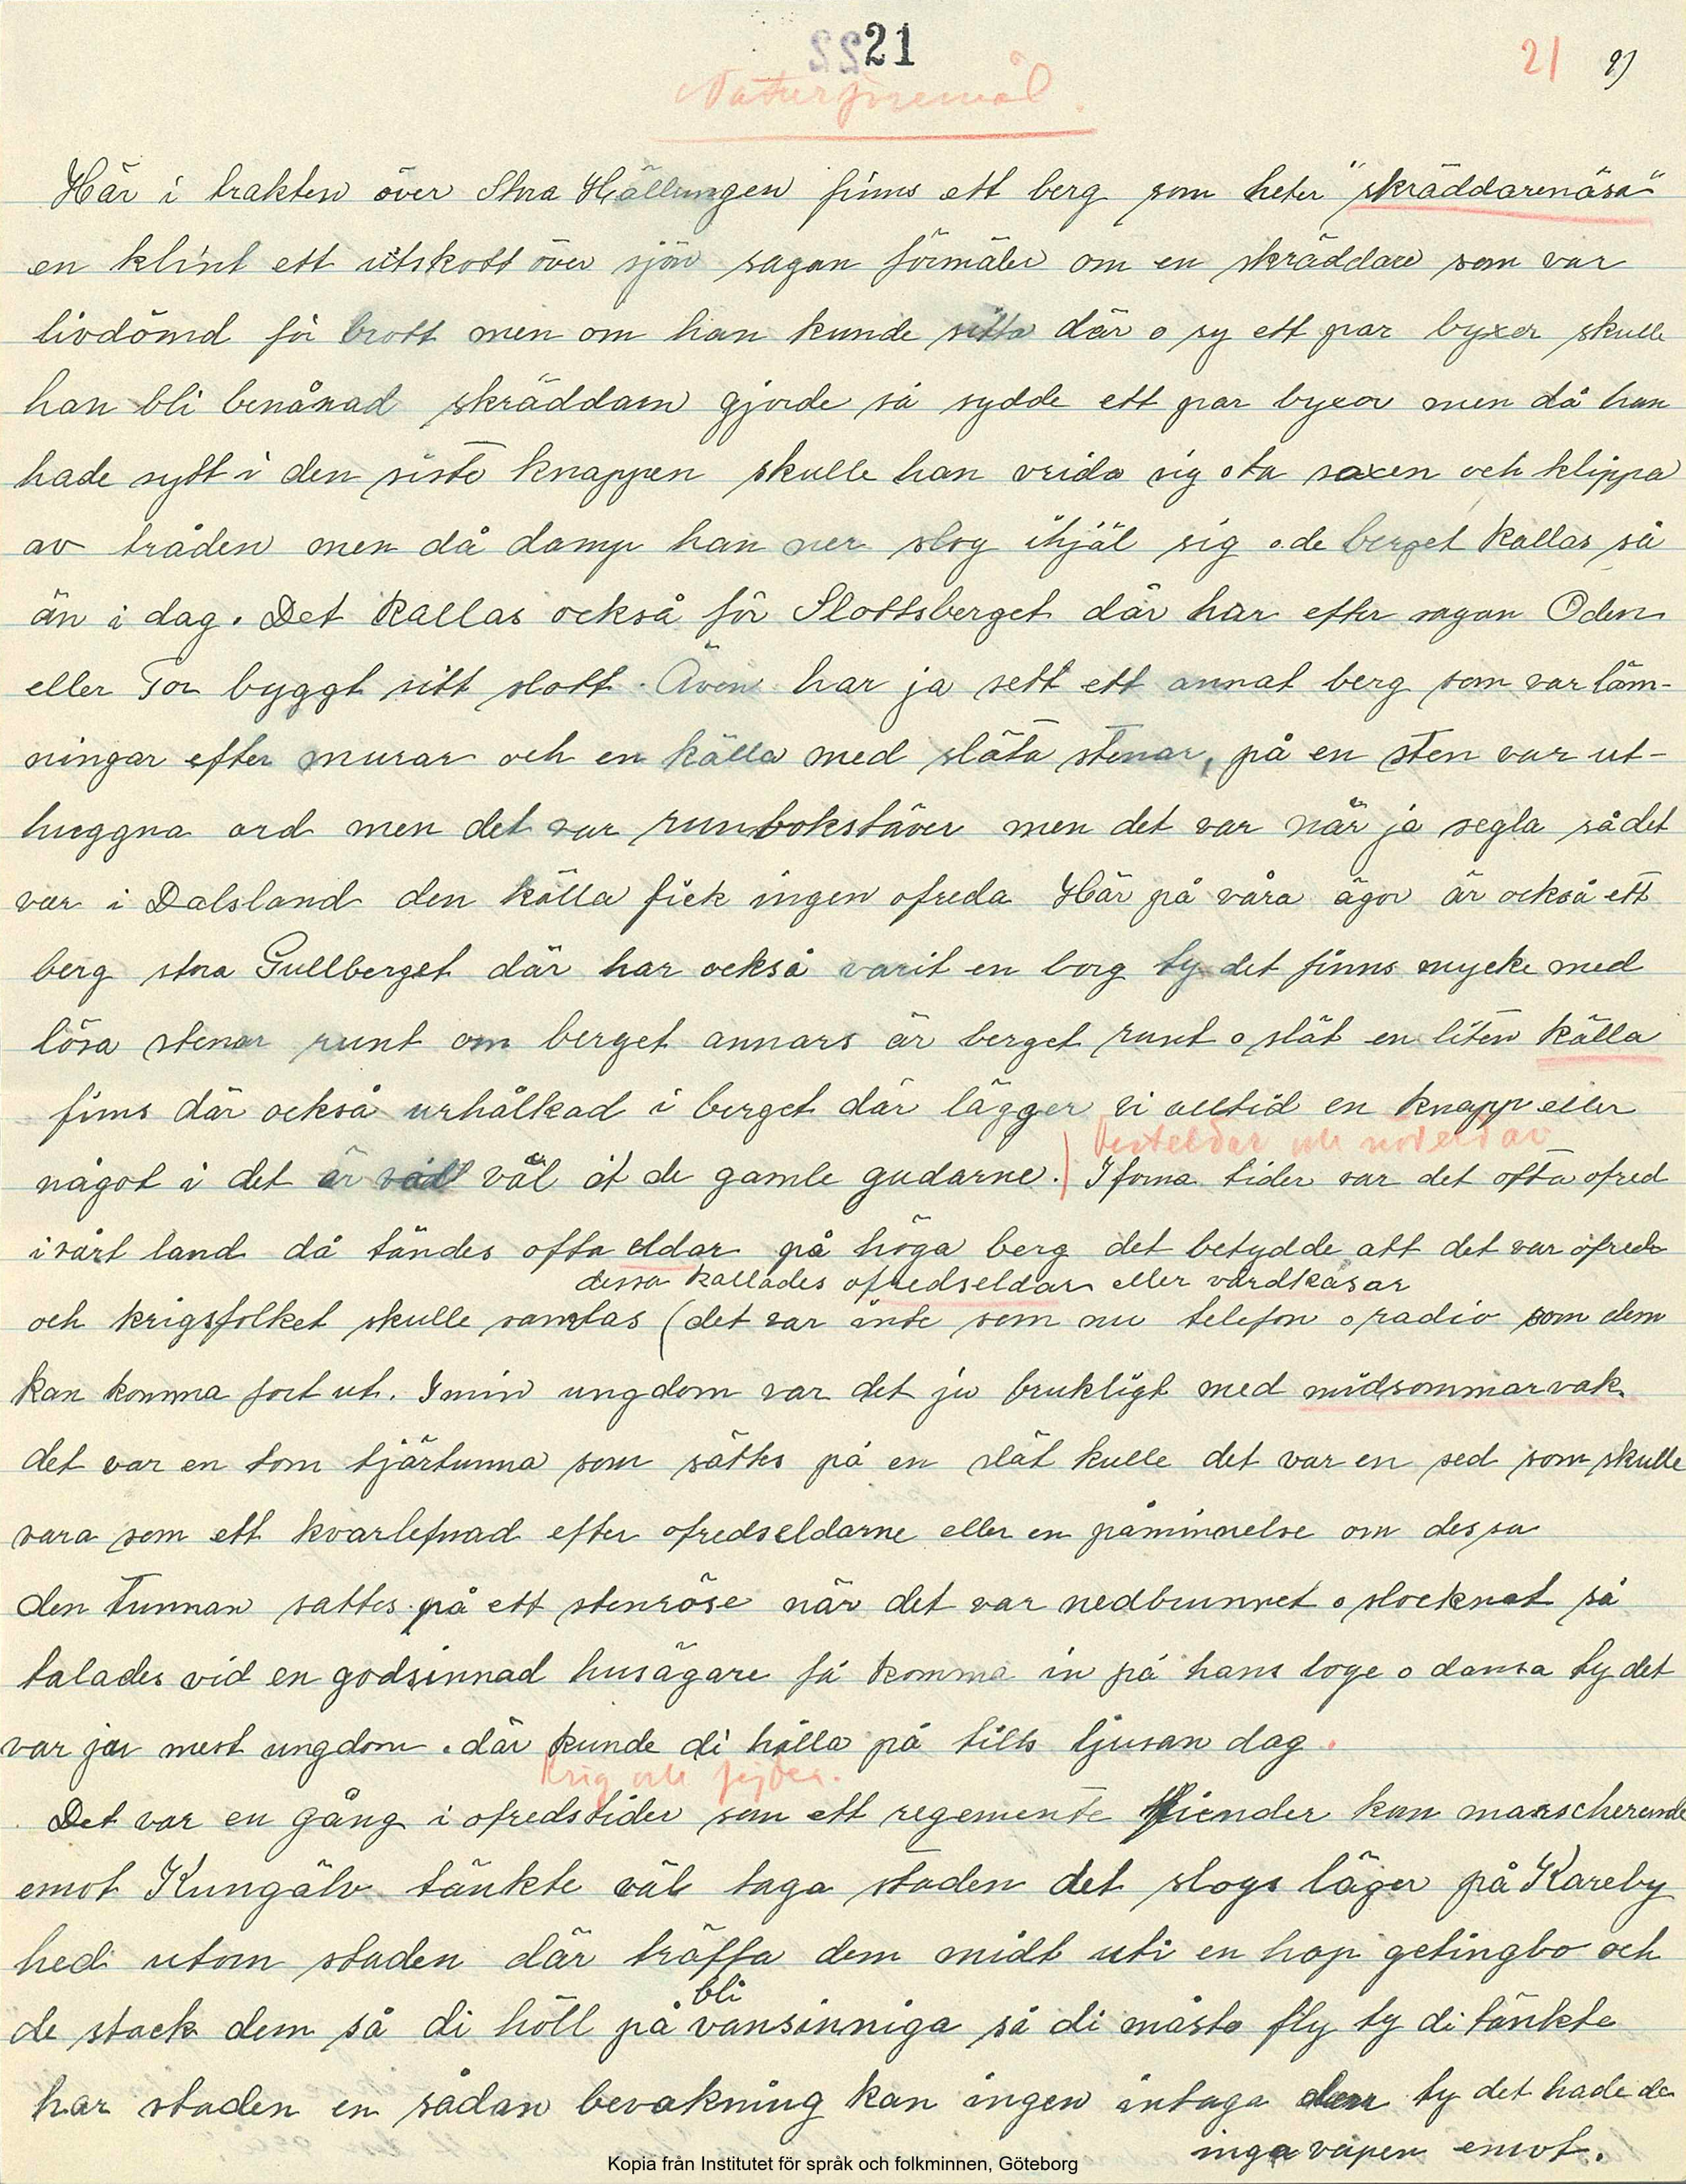 22 21
21 9)
Naturföremål.
Här i trakten över Stra Hällungen finns ett berg som heter "skräddarenäsa"
en klint ett utskott över sjön sagan förmäler om en skräddare som var
livdömd för brott men om han kunde sitta där o sy ett par byxer skulle
han bli benånad skräddarn gjorde så sydde ett par byxor men då han
hade sytt i den siste knappen skulle han vrida sig o ta saxen och klippa
av tråden men då damp han ner slog ihjäl sig o. de berget kallas så
än i dag. Det kallas också för Slottsberget där har efter sagan Oden
eller Tor byggt sitt slott. Även har ja sett ett annat berg som var läm-
ningar efter murar och en källa med släta stenar, på en sten var ut-
huggna ord men det var runbokstäver men det var när ja segla så det
var i Dalsland den källa fick ingen ofreda Här på våra ägor är också ett
berg stora Gullberget där har också varit en borg ty det finns mycke med
lösa stenar runt om berget annars är berget runt o slät en liten källa
fins där också urhålkad i berget där lägger vi alltid en knapp eller
Festeldar och nödeldar
något i det är väl åt de gamle gudarne.) I forna tider var det ofta ofred
i vårt land då tändes ofta eldar på höga berg det betydde att det var ofred
dessa kallades ofredseldar eller vårdkasar
och krigsfolket skulle samlas (det var inte som nu telefon o radio som dem
kan komma fort ut. I min ungdom var det ju brukligt med midsommarvak.
det var en tom tjärtunna som sättes på en slät kulle det var en sed som skulle
vara som ett kvarlefnad efter ofredseldarne eller en påminnelse om dessa
den tunnan sattes på ett stenröse när det var nedbrunnet o slocknat så
talades vid en godsinnad husägare få komma in på hans loge o dansa ty det
var ju mest ungdom. där kunde di hålla på tills ljusan dag.
Krig och fejder.
Det var en gång i ofredstider som ett regemente fiender kom marscherende
emot Kungälv tänkte väl taga staden det slogs läger på Kareby
hed utom staden där träffa dem midt uti en hop getingbo och
bli
de stack dem så di höll på vansinniga så di måste fly ty di tänkte
har staden en sådan bevakning kan ingen intaga den ty det hade de
inga vapen emot.
Kopia från Institutet för språk och folkminnen, Göteborg